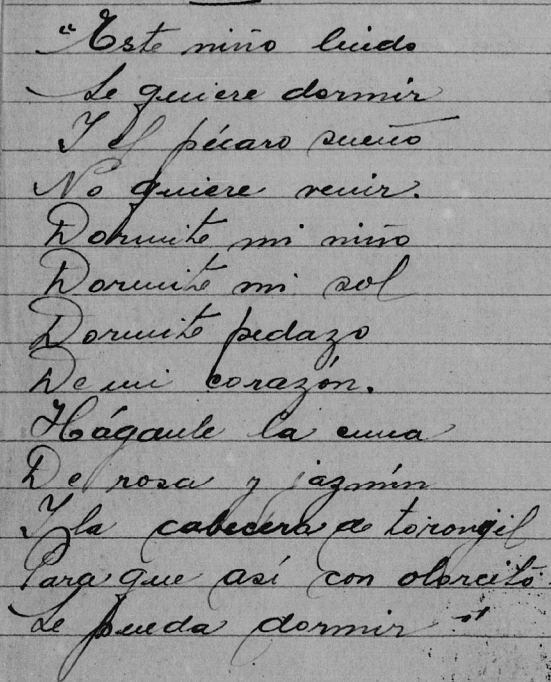 "Este niño lindo
Se quiere dormir
Y el pícaro sueño
No quiere venir.
Dormite mi niño
Dormite mi sol
Dormite pedazo
De mi corazón.
Háganle la cuna
De rosa y jazmín
Y la cabecera de torongil
Para que así con olorcito
Se pueda dormir"